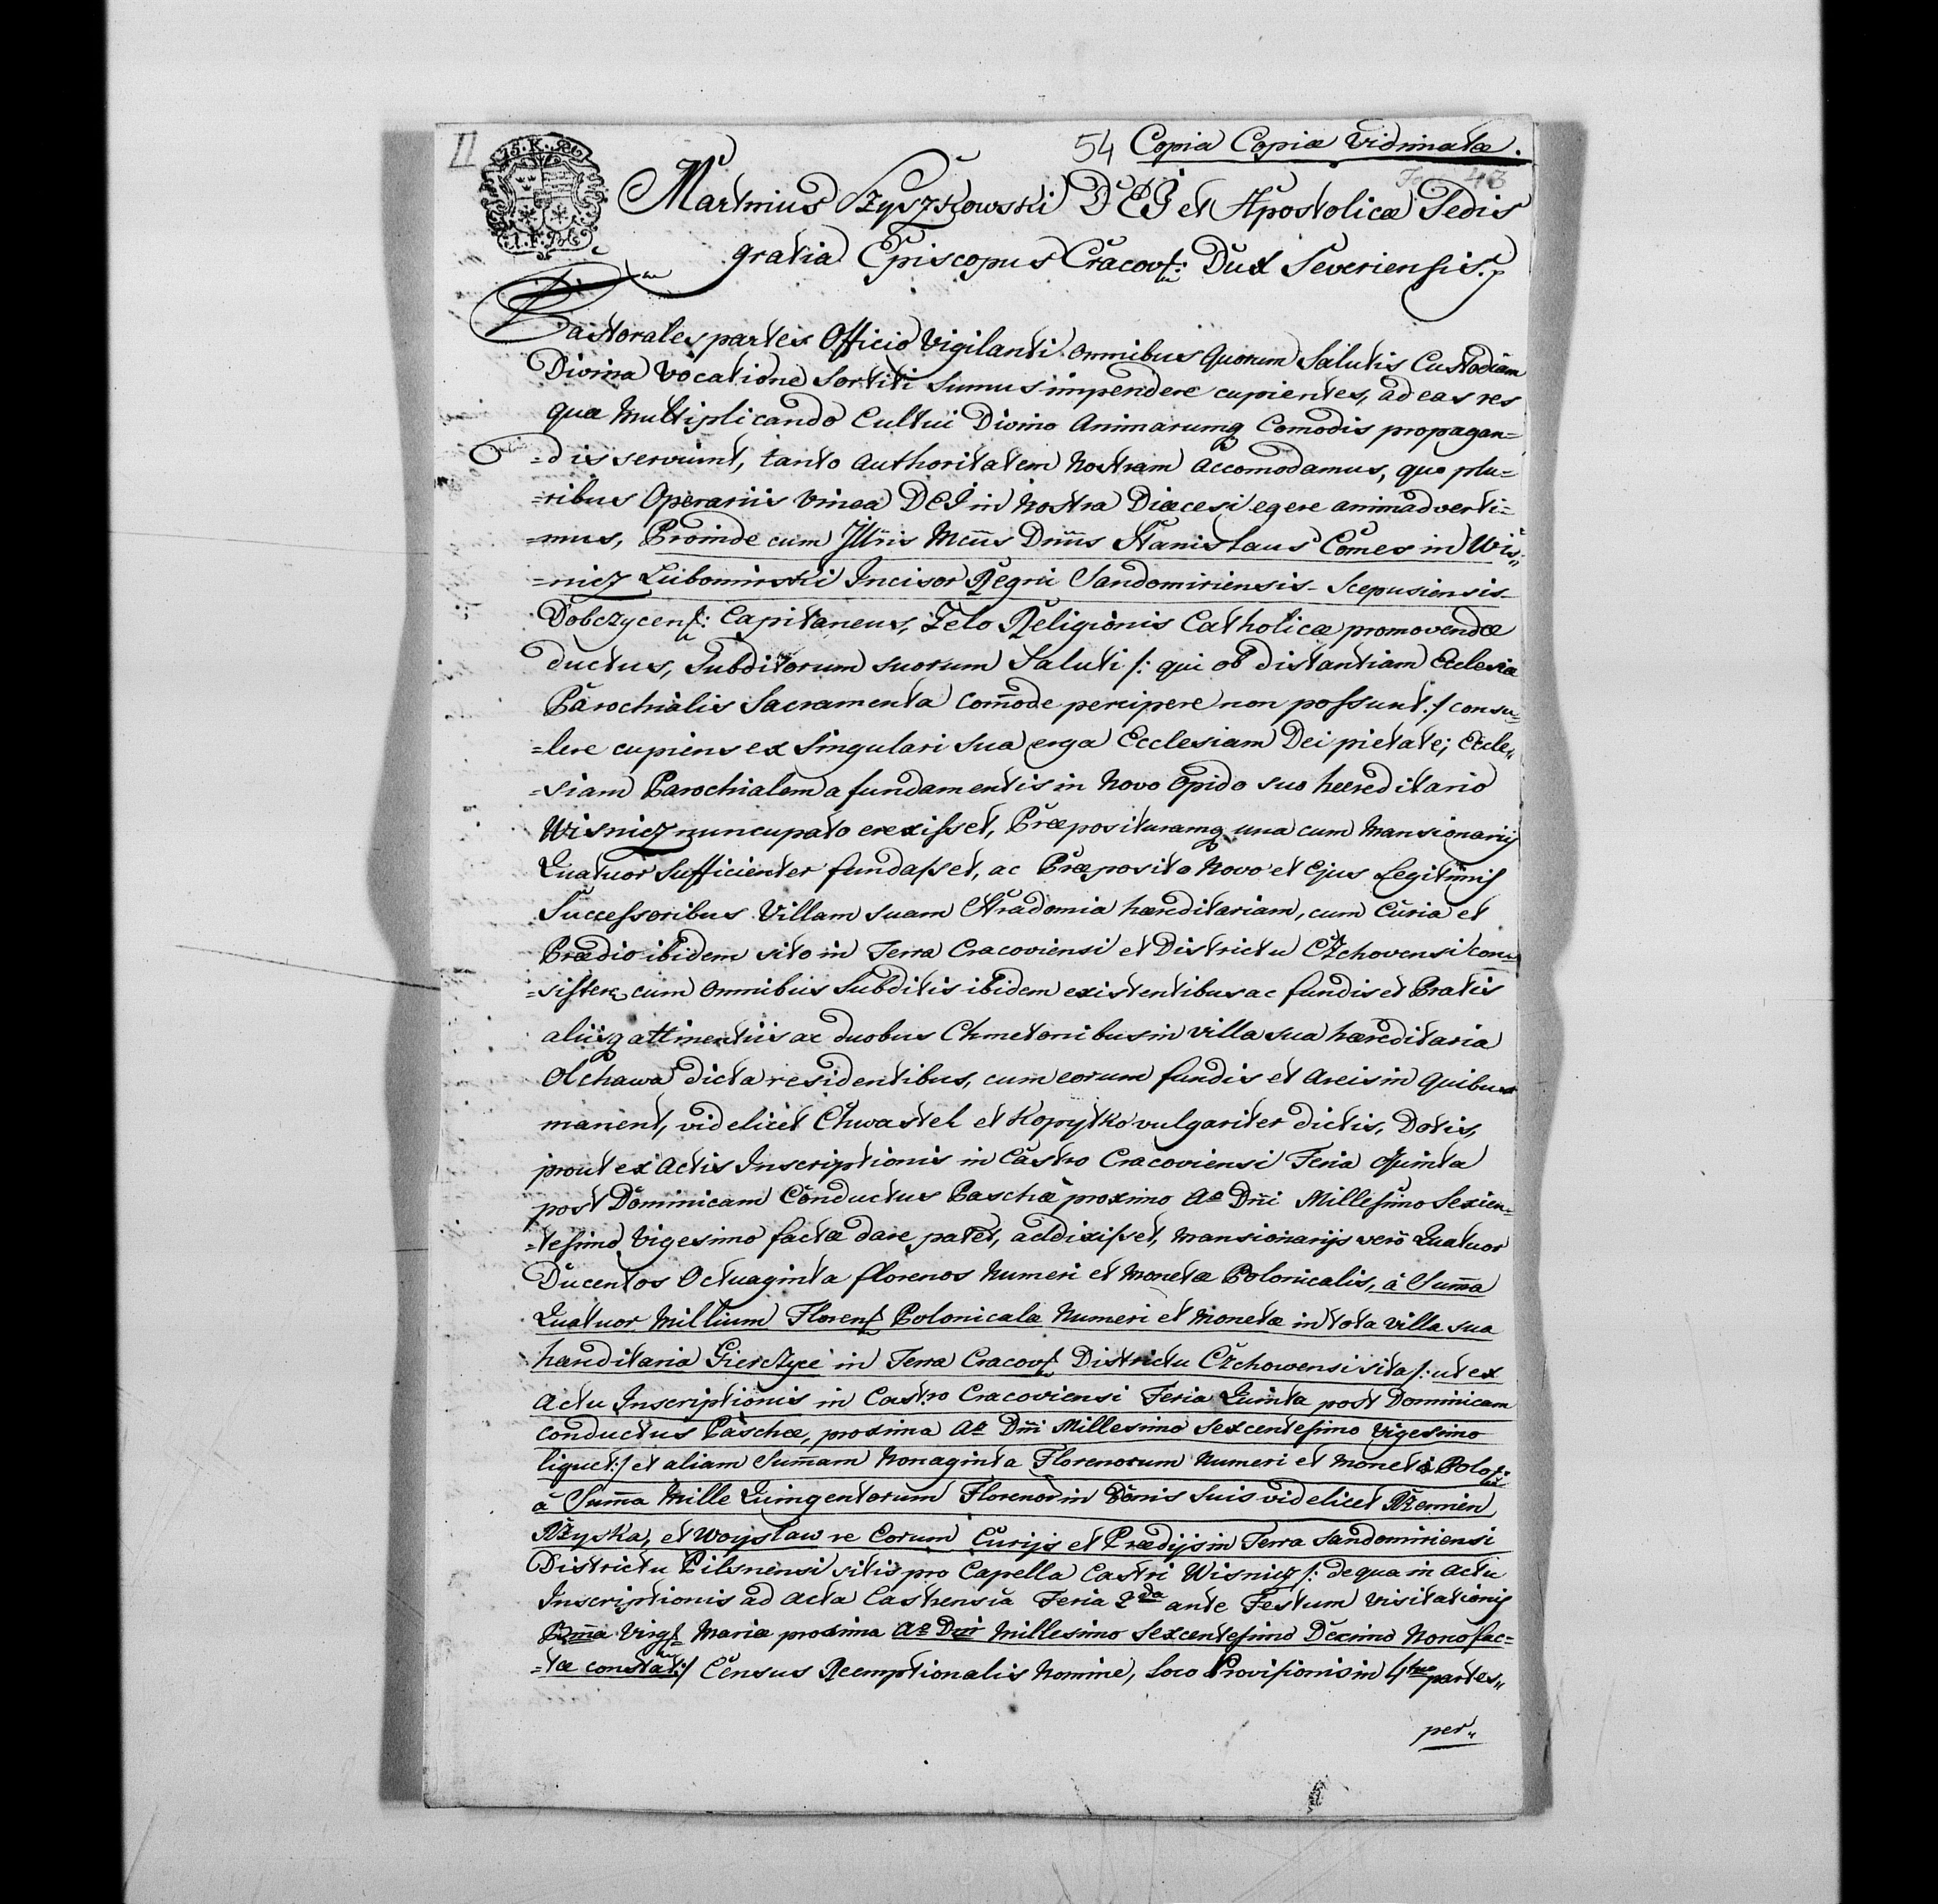 II
54 Copia Copiæ Vidimatæ.
43
15. K.
Martinus Szyszkowski DEI et Apostolicæ Sedis
gratia Episcopus Cracov: Dux Severiensis.
Pastorales partes Officio Vigilanti omnibus Quorum Salutis Custodiam
Divina Vocatione Sortiti Sumus impendere cupientes, ad eas res
quæ Multiplicando Cultui Divino Animarumq Comodis propagan=
=dis serviunt, tanto Authoritatem Nostram Accomodamus, quo plu=
=ribus Operariis Vinea DEI in Nostra Diæcesi egere animadverti=
=mus, Proinde cum Jllris Mcus Dnus Stanislaus Comes in Wis=
=nicz Lubomirski Incisor Regni Sandomiriensis - Scepusiensis -
Dobczycens: Capitaneus, Zelo Religionis Catholicæ promovendæ
ductus, Subditorum suorum Saluti /: qui ob distantiam Ecclesia
Parochialis Sacramenta Comode percipere non possunt :/ consu=
=lere cupiens ex Singulari sua erga Ecclesiam Dei pietate; Eccle=
=siam Parochialem a fundamentis in Novo Opido suo hæreditario
Wisnicz nuncupato erexisset, Præposituramq una cum Mansionarijs
Quatuor Sufficienter fundasset, ac Præposito Novo et Ejus Legitimis
Successoribus Villam suam Stradomia hæreditariam, cum Curia et
Prædio ibidem sito in Terra Cracoviensi et Districtu Czchovensi con=
=sistere cum Omnibus Subditis ibidem existentibus ac fundis et Pratis
aliisq attinentiis ac duobus Chmetonibus in Villa sua hæreditaria
Olchawa dicta residentibus, cum eorum fundis et Areis in quibus
manent, videlicet Chwastek et Kopytko vulgariter dictis, Dotis,
prout ex Actis Inscriptionis in Castro Cracoviensi Feria Quinta
post Dominicam Conductus Paschæ proximo Ao Dni Millesimo Sexcen=
=tesimo Vigesimo factæ dare patet, addixisset, Mansionarijs vero Quatuor
Ducentos Octuaginta florenos Numeri et Monetæ Polonicalis, à Summa
Quatuor Millium Florens Polonicalæ Numeri et Monetæ in tota Villa sua
hæreditaria Gierczyce in Terra Cracovs Districtu Czchowensi sita /: ut ex
Actu Inscriptionis in Castro Cracoviensi Feria Quinta post Dominicam
Conductus Paschæ, proxima Ao Dni Millesimo Sexcentesimo Vigesimo
liquet :/ et aliam Summam Nonaginta Florenorum Numeri et Monetæ Polo:
à Summa Mille Quingentorum Florenor in Bonis Suis videlicet Rzemien
Rzyska, et Woyslaw re Eorum Curijs et Prædijs in Terra Sandomiriensi
Districtu Pilsnensi sitis pro Capella Castri Wisnicz /: de qua in Actu
Inscriptionis ad Acta Castrensia Feria 2da ante Festum Visitationis
Bmæ Virgs Mariæ proxima Ao Dni Millesimo Sexcentesimo Decimo Nono fac=
=tæ constat :/ Census Reemptionalis Nomine, Loco Provisionis in 4tuor partes,,
per,,